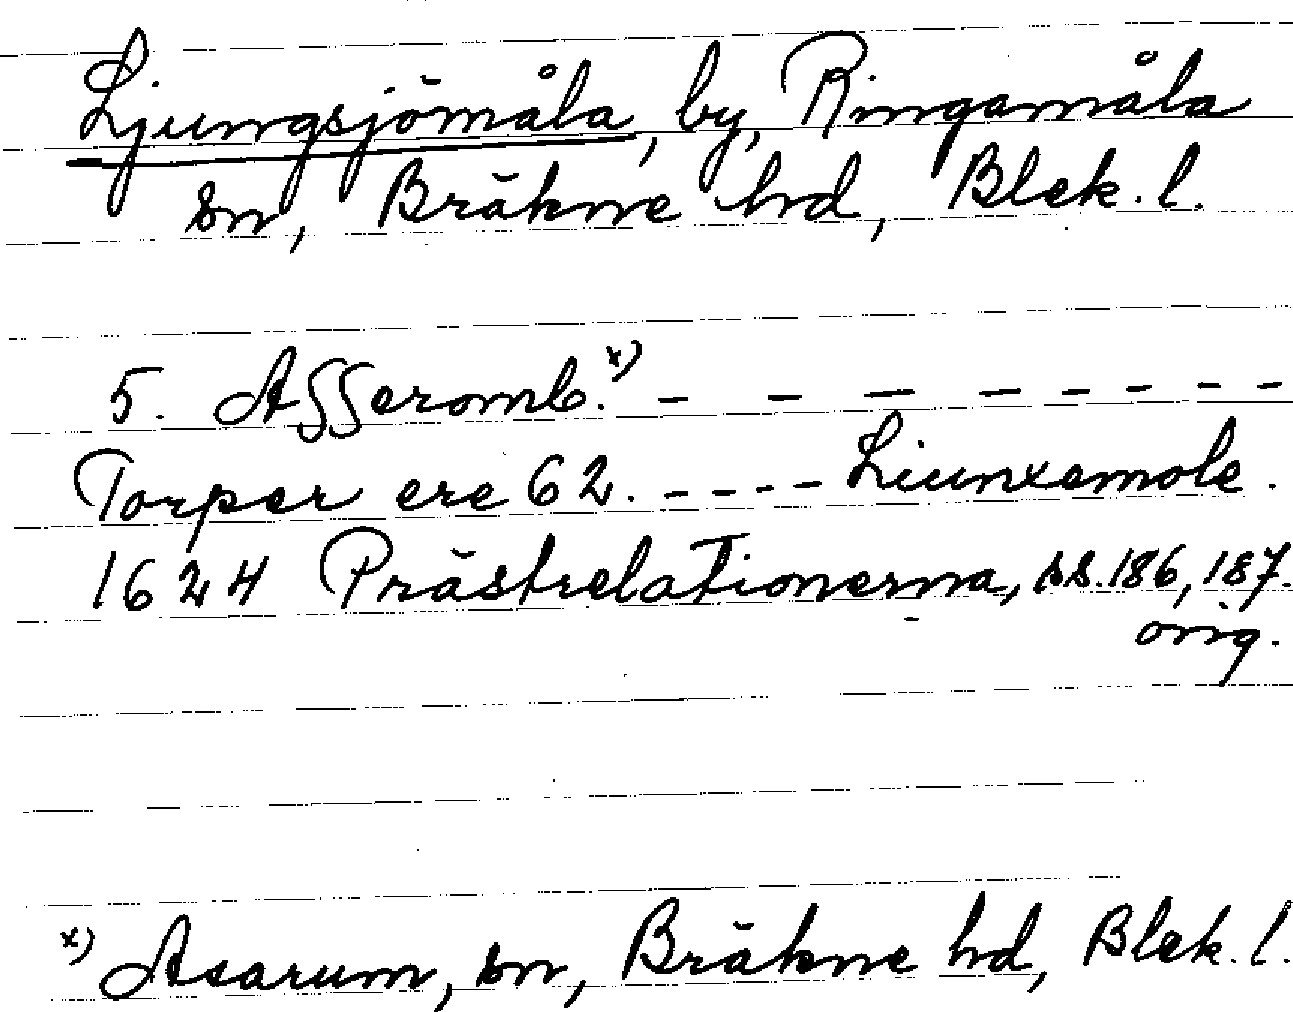 Ljungsjömåla, by, Ringamåla
sn, Bräkne hd, Blek. l.
5. Asseromb.x) - - - - - - - -
Torper ere 62. - - - - Liunxemole.
1624 Prästrelationerna, ss. 186, 187.
orig.
x) Asarum, sn, Bräkne hd, Blek. l.